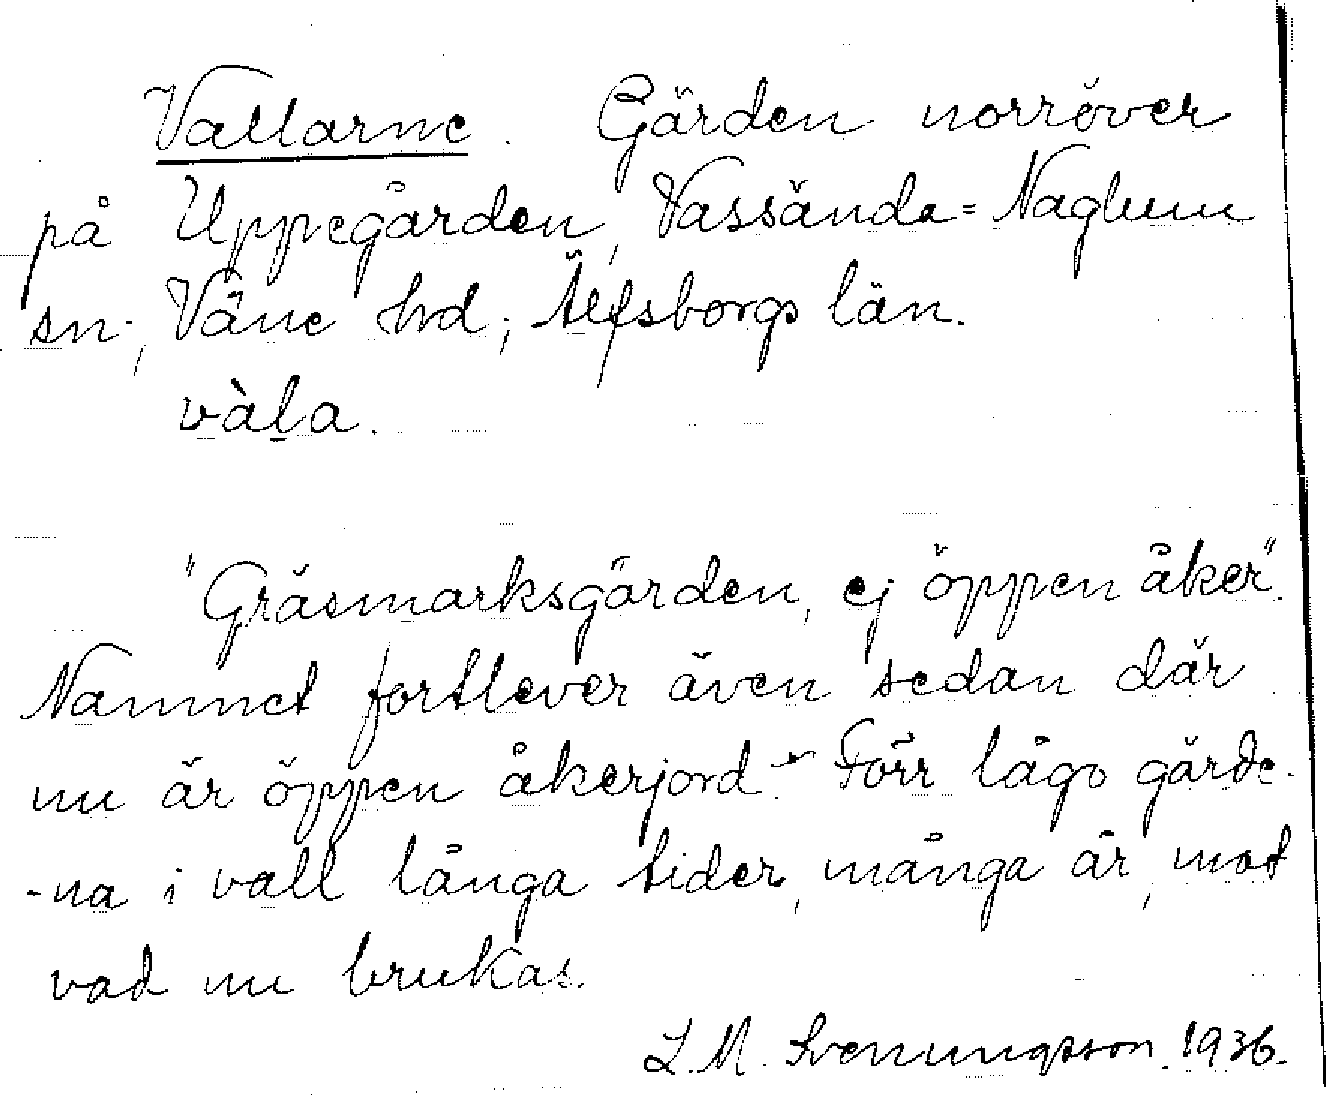 Vallarne. Gärden norröver
på Uppegården, Vassända=Naglum
sn; Väne hd; Älfsborgs län.
vàḷa.
"Gräsmarksgärden, ej öppen åker".
Namnet fortlever även sedan där
nu är öppen åkerjord. - Förr lågo gärde-
-na i vall långa tider, många år, mot
vad nu brukas.
L. M. Svenungsson. 1936.